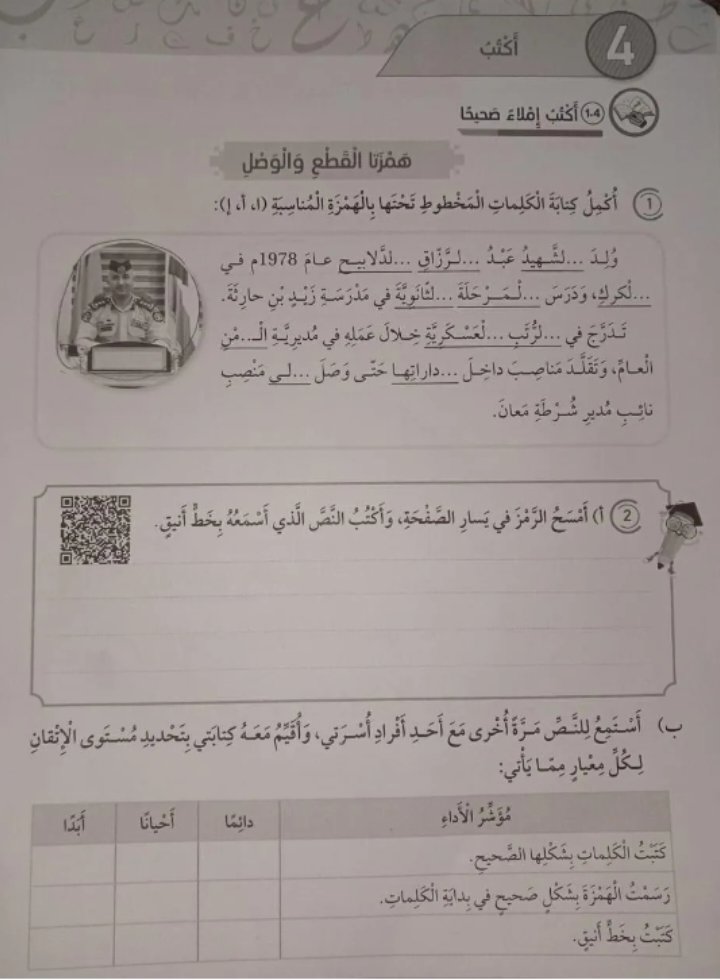 4
أَكْتُبُ
1-4 أَكْتُبُ إِمْلاءً صَحيحًا
هَمْزَتا الْقَطْعِ وَالْوَصْلِ
1 أُكْمِلُ كِتابَةَ الْكَلِماتِ الْمَخْطوطِ تَحْتَها بِالْهَمْزَةِ الْمُناسِبَةِ (ا، أ، إ):
وُلِدَ ...لشَّهيدُ عَبْدُ ...لرَّزّاقِ ...لدَّلابيح عامَ 1978م في
...لْكركِ، وَدَرَسَ ...لْمَرْحَلَةَ ...لثّانَوِيَّةَ في مَدْرَسَةِ زَيْدِ بْنِ حارِثَةَ.
تَدَرَّجَ في ...لرُّتَبِ ...لْعَسْكَرِيَّةِ خِلالَ عَمَلِهِ في مُديرِيَّةِ الْـ...مْنِ
الْعامِّ، وَتَقَلَّدَ مَناصِبَ داخِلَ ...داراتِها حَتّى وَصَلَ ...لى مَنْصِبِ
نائِبِ مُديرِ شُرْطَةِ مَعانَ.
2 أ) أَمْسَحُ الرَّمْزَ في يَسارِ الصَّفْحَةِ، وَأَكْتُبُ النَّصَّ الَّذي أَسْمَعُهُ بِخَطٍّ أَنيقٍ.
ب) أَسْتَمِعُ لِلنَّصِّ مَرَّةً أُخْرى مَعَ أَحَدِ أَفْرادِ أُسْرَتي، وَأُقَيِّمُ مَعَهُ كِتابَتي بِتَحْديدِ مُسْتَوى الْإِتْقانِ
لِكُلِّ مِعْيارٍ مِمّا يَأْتي:
مُؤَشِّرُ الْأَداءِ دائِمًا أَحْيانًا أَبَدًا
كَتَبْتُ الْكَلِماتِ بِشَكْلِها الصَّحيحِ.
رَسَمْتُ الْهَمْزَةَ بِشَكْلٍ صَحيحٍ في بِدايَةِ الْكَلِماتِ.
كَتَبْتُ بِخَطٍّ أَنيقٍ.